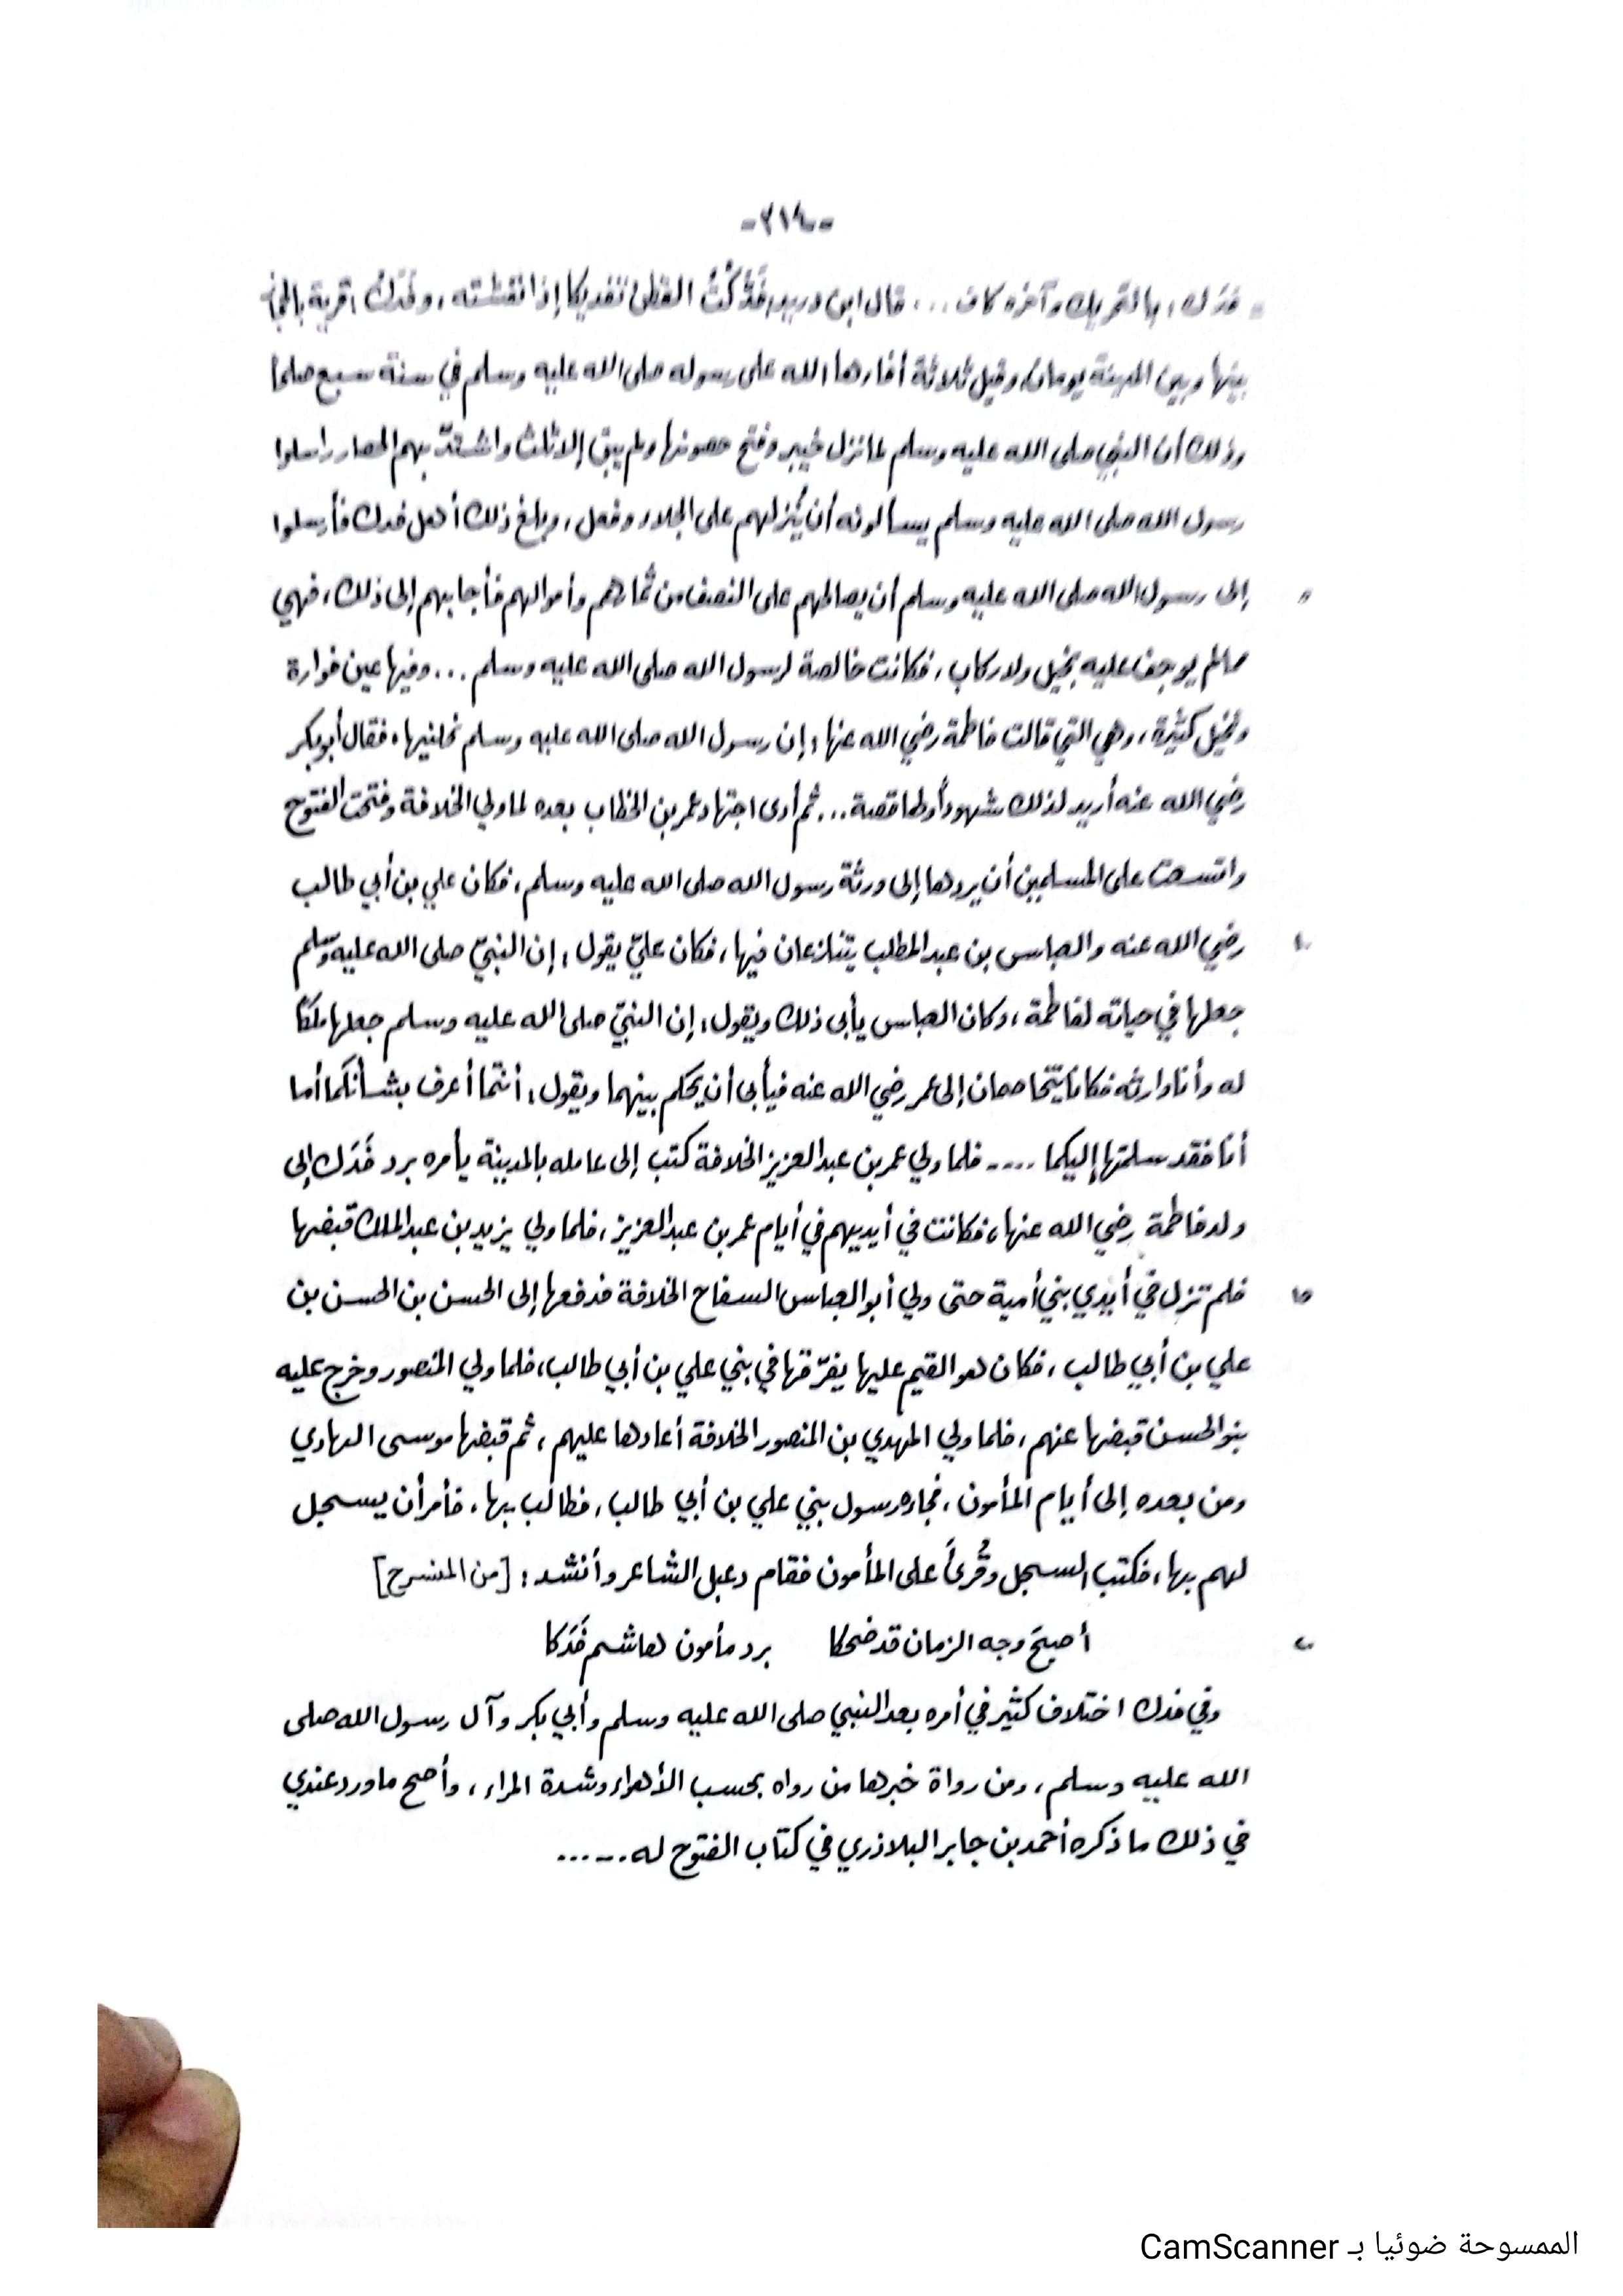 -٢١٤-
فَدَك: بالتحريك وآخره كاف ... قال ابن دريد: فَدَّكْتُ القطن تفديكا إذا نفشته، وفَدَكُ: قرية بالحجاز
بينها وبين المدينة يومان، وقيل ثلاثة أفاءها الله على رسوله صلى الله عليه وسلم في سنة سبع صلحاً
وذلك أن النبي صلى الله عليه وسلم لما نزل خيبر وفتح حصونها ولم يبق إلا ثلث واشتدّ بهم الحصار راسلوا
رسول الله صلى الله عليه وسلم يسألونه أن يُنزلهم على الجلاء وفعل، وبلغ ذلك أهل فدك فأرسلوا
٥ إلى رسول الله صلى الله عليه وسلم أن يصالحهم على النصف من ثمارهم وأموالهم فأجابهم إلى ذلك، فهي
مما لم يوجف عليه بخيل ولا ركاب، فكانت خالصة لرسول الله صلى الله عليه وسلم ... وفيها عين فوارة
ونخيل كثيرة، وهي التي قالت فاطمة رضي الله عنها: إن رسول الله صلى الله عليه وسلم نحلنيها، فقال أبو بكر
رضي الله عنه أريد لذلك شهوداً ولها قصة... ثم أدى اجتهاد عمر بن الخطاب بعده لما ولي الخلافة وفتحت الفتوح
واتسعت على المسلمين أن يردها إلى ورثة رسول الله صلى الله عليه وسلم، فكان علي بن أبي طالب
١٠ رضي الله عنه والعباس بن عبد المطلب يتنازعان فيها، فكان عليّ يقول: إن النبيّ صلى الله عليه وسلم
جعلها في حياته لفاطمة، وكان العباس يأبى ذلك ويقول: إن النبيّ صلى الله عليه وسلم جعلها ملكاً
له وأنا وارثه فكانا يتخاصمان إلى عمر رضي الله عنه فيأبى أن يحكم بينهما ويقول: أنتما أعرف بشأنكما أما
أنا فقد سلمتها إليكما .... فلما ولي عمر بن عبد العزيز الخلافة كتب إلى عامله بالمدينة يأمره برد فَدَك إلى
ولد فاطمة رضي الله عنها، فكانت في أيديهم في أيام عمر بن عبد العزيز، فلما ولي يزيد بن عبد الملك قبضها
١٥ فلم تزل في أيدي بني أمية حتى ولي أبو العباس السفاح الخلافة فدفعها إلى الحسن بن الحسن بن
علي بن أبي طالب، فكان هو القيم عليها يفرّقها في بني علي بن أبي طالب، فلما ولي المنصور وخرج عليه
بنو الحسن قبضها عنهم، فلما ولي المهدي بن المنصور الخلافة أعادها عليهم، ثم قبضها موسى الهادي
ومن بعده إلى أيام المأمون، فجاءه رسول بني علي بن أبي طالب، فطالب بها، فأمر أن يسجل
لهم بها، فكتب السجل وقُرئَ على المأمون فقام دعبل الشاعر وأنشد: [من المنسرح]
٢٠ أصبحَ وجه الزمان قد ضحكا برد مأمون هاشم فَدَكا
وفي فدك اختلاف كثير في أمره بعد النبي صلى الله عليه وسلم وأبي بكر وآل رسول الله صلى
الله عليه وسلم، ومن رواة خبرها من رواه بحسب الأهواء وشدة المراء، وأصح ما ورد عندي
في ذلك ما ذكره أحمد بن جابر البلاذري في كتاب الفتوح له......
الممسوحة ضوئيا بـ CamScanner